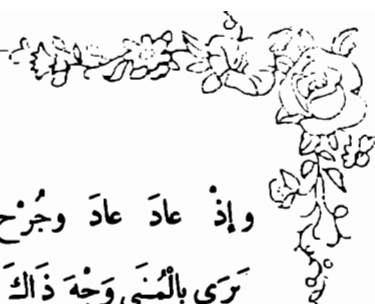 وإذْ عادَ عادَ وجُرْح
يَرَى بِالْمُنَى وَجْهَ ذَاكَ